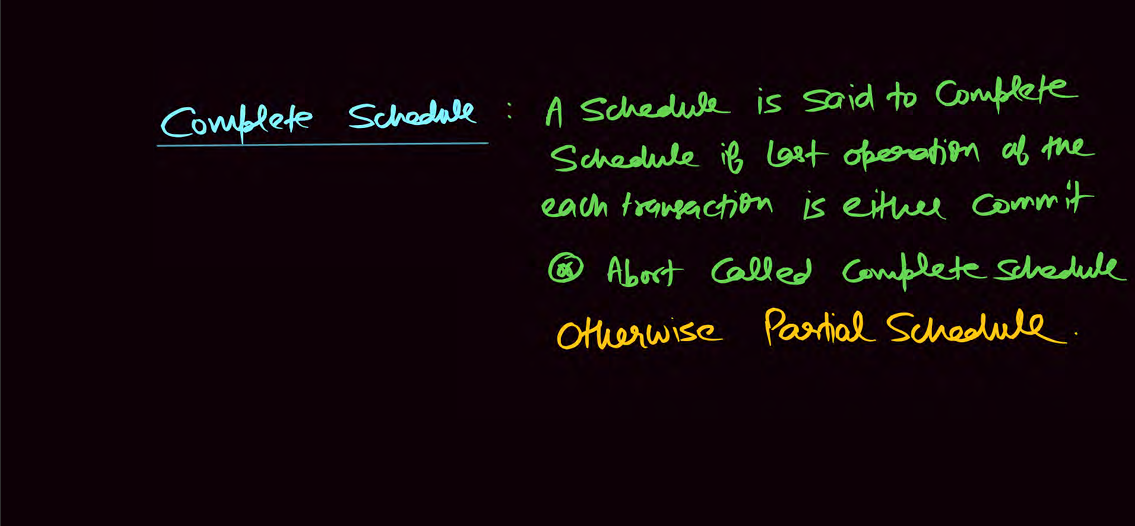 Complete Schedule : A Schedule is said to Complete
Schedule if last operation of the
each transaction is either commit
or Abort called complete schedule
Otherwise Partial Schedule.